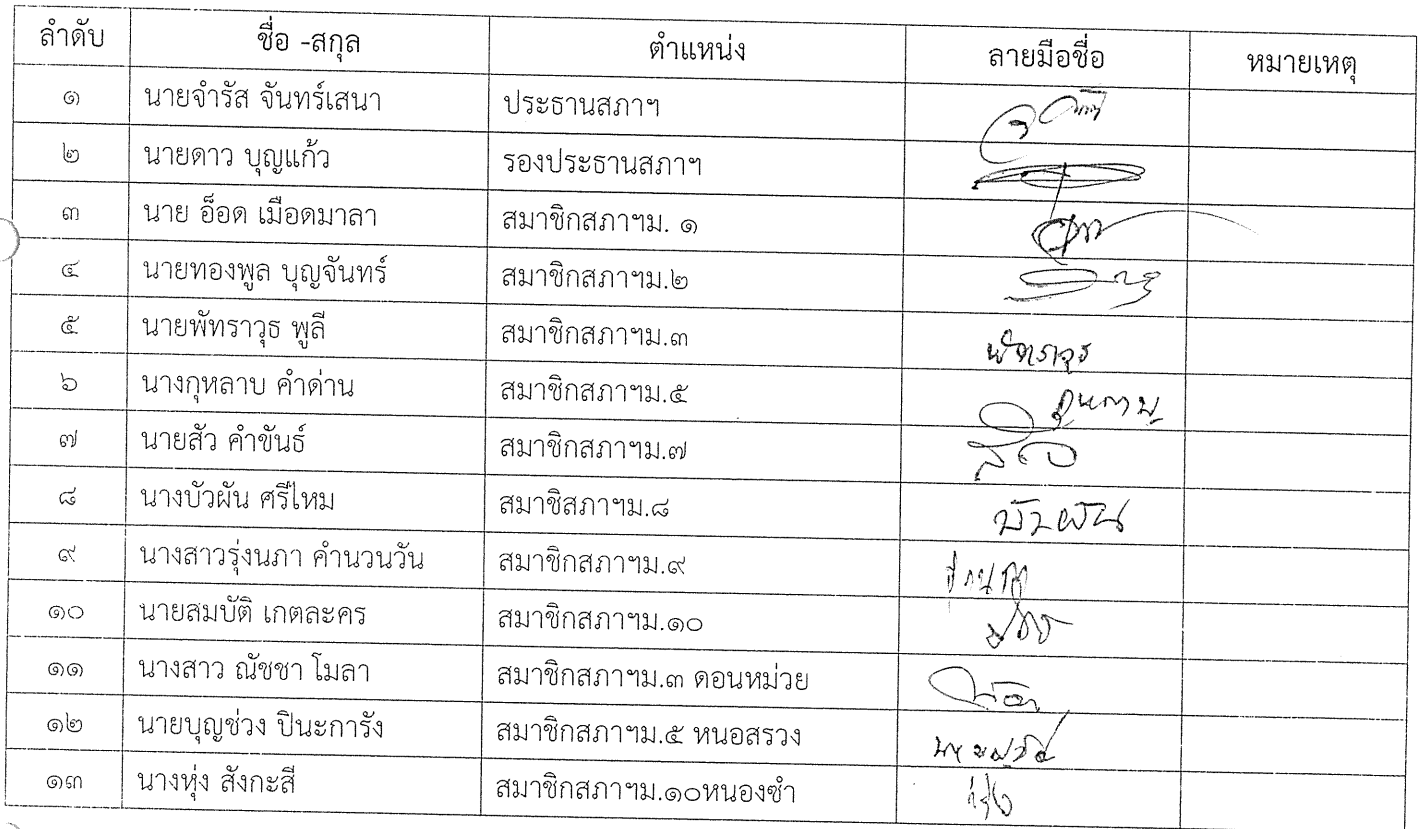 ลำดับ ชื่อ -สกุล ตำแหน่ง ลายมือชื่อ หมายเหตุ
๑ นายจำรัส จันทร์เสนา ประธานสภาฯ
๒ นายดาว บุญแก้ว รองประธานสภาฯ
๓ นาย อ็อด เมือดมาลา สมาชิกสภาฯม. ๑
๔ นายทองพูล บุญจันทร์ สมาชิกสภาฯม.๒
๕ นายพัทราวุธ พูลี สมาชิกสภาฯม.๓ พัทราวุธ
๖ นางกุหลาบ คำด่าน สมาชิกสภาฯม.๕ กุหลาบ
๗ นายสัว คำขันธ์ สมาชิกสภาฯม.๗
๘ นางบัวผัน ศรีไหม สมาชิสภาฯม.๘ บัวผัน
๙ นางสาวรุ่งนภา คำนวนวัน สมาชิกสภาฯม.๙
๑๐ นายสมบัติ เกตละคร สมาชิกสภาฯม.๑๐
๑๑ นางสาว ณัชชา โมลา สมาชิกสภาฯม.๓ ดอนหม่วย
๑๒ นายบุญช่วง ปินะการัง สมาชิกสภาฯม.๕ หนอสรวง
๑๓ นางหุ่ง สังกะสี สมาชิกสภาฯม.๑๐หนองซำ